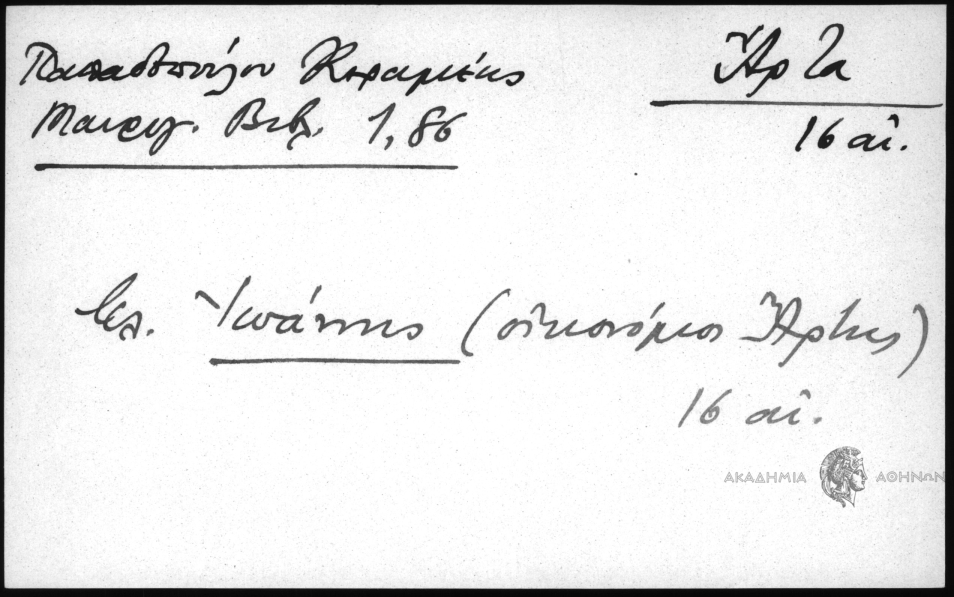 Παπαδοπούλου Κεραμεύς
Ἄρτα
Μαυρογ. Βιβλ. 1,86
16 αἰ.
βλ. Ἰωάννης (οἰκονόμος Ἄρτης)
16 αἰ.
ΑΚΑΔΗΜΙΑ ΑΘΗΝΩΝ